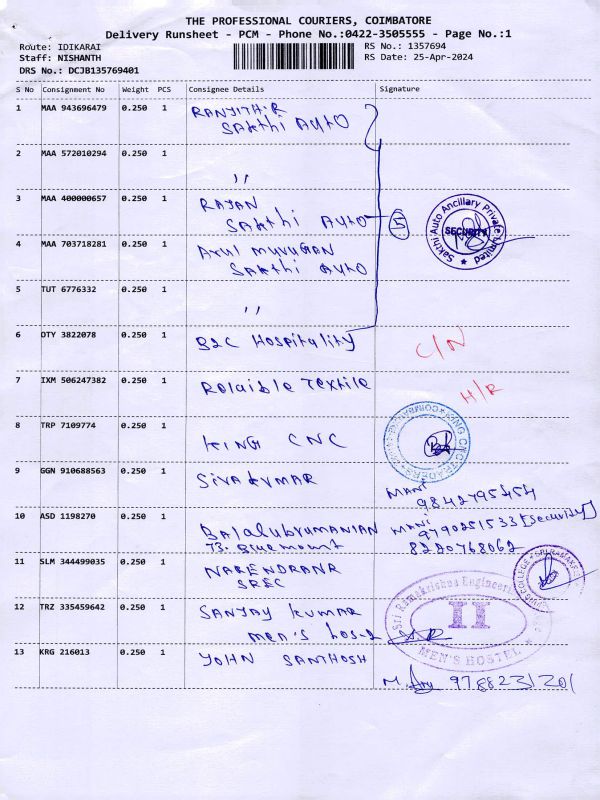 THE PROFESSIONAL COURIERS, COIMBATORE
Delivery Runsheet - PCM - Phone No.:0422-3505555 - Page No.:1
Route: IDIKARAI RS No.: 1357694
Staff: NISHANTH RS Date: 25-Apr-2024
DRS No.: DCJB135769401
S No Consignment No Weight PCS Consignee Details Signature
1 MAA 943696479 0.250 1 RANJITH.R
Sakthi Auto
2 MAA 572010294 0.250 1 ,,
3 MAA 400000657 0.250 1 RAJAN
Sakthi Auto 5
Sakthi Auto Ancillary Private Limited
SECURITY
4 MAA 703718281 0.250 1 Arul muvugan
Sakthi Auto
5 TUT 6776332 0.250 1 ,,
6 OTY 3822078 0.250 1 B2C Hospitality C/N
7 IXM 506247382 0.250 1 Relaible Textile H/R
8 TRP 7109774 0.250 1 KING CNC
KING CNC TRADERS
9 GGN 910688563 0.250 1 Sivakumar
MANI
9842795454
10 ASD 1198270 0.250 1 Balalubrumanian MANI 9790251533 [Security]
73. Bluemount 8220768062
11 SLM 344499035 0.250 1 NARENDRANR
SREC
12 TRZ 335459642 0.250 1 SANJAY Kumar
men's hos-2
Sri Ramakrishna Engineering College
II
MEN'S HOSTEL
13 KRG 216013 1 YOHN SANTHOSH
9788231201